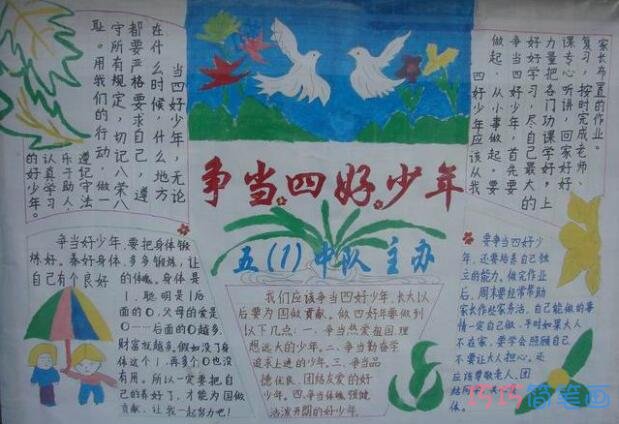 争当四好少年
五(1)中队主办
当四好少年,无论
在什么时候,什么地方
都要严格要求自己,遵
守所有规定,切记八荣八
耻。用我们的行动,做一
遵记守法
乐于助人,
认真学习
的好少年。
四好少年应该从我
做起,从小事做起,要
争当四好少年,首先要
好好学习,尽自己最大的
力量把各门功课学好,上
课专心听讲,回家好好
复习,按时完成老师、
家长布置的作业。
争当好少年,要把身体锻
炼好。养好身体,多多锻炼,让
自己有个良好的体魄。身体是
1,聪明是1后
面的0,父母的爱是
0……后面的0越多,
财富就越多。假如没了身
体这个1,再多个0也没
有用。所以一定要把自
己的养好了,才能为国做
贡献,让我一起努力吧!
我们应该争当四好少年,长大以
后要为国做贡献。做四好少年要做到
以下几点:一、争当热爱祖国,理
想远大的少年。二、争当勤奋学
追求上进的少年。三、争当品
德优良,团结友爱的好
少年。四、争当体魄强健
活泼开朗的好少年。
要争当四好少
年,还要培养自己独
立的能力。做完作业
后,周末要经常帮助
家长作些家务活,自己能做的事
情一定自己做,平时如果大人
不在家,要学会照顾自己
不要让大人担心。还
应该尊敬老人,团
结同学
体。
巧巧简笔画